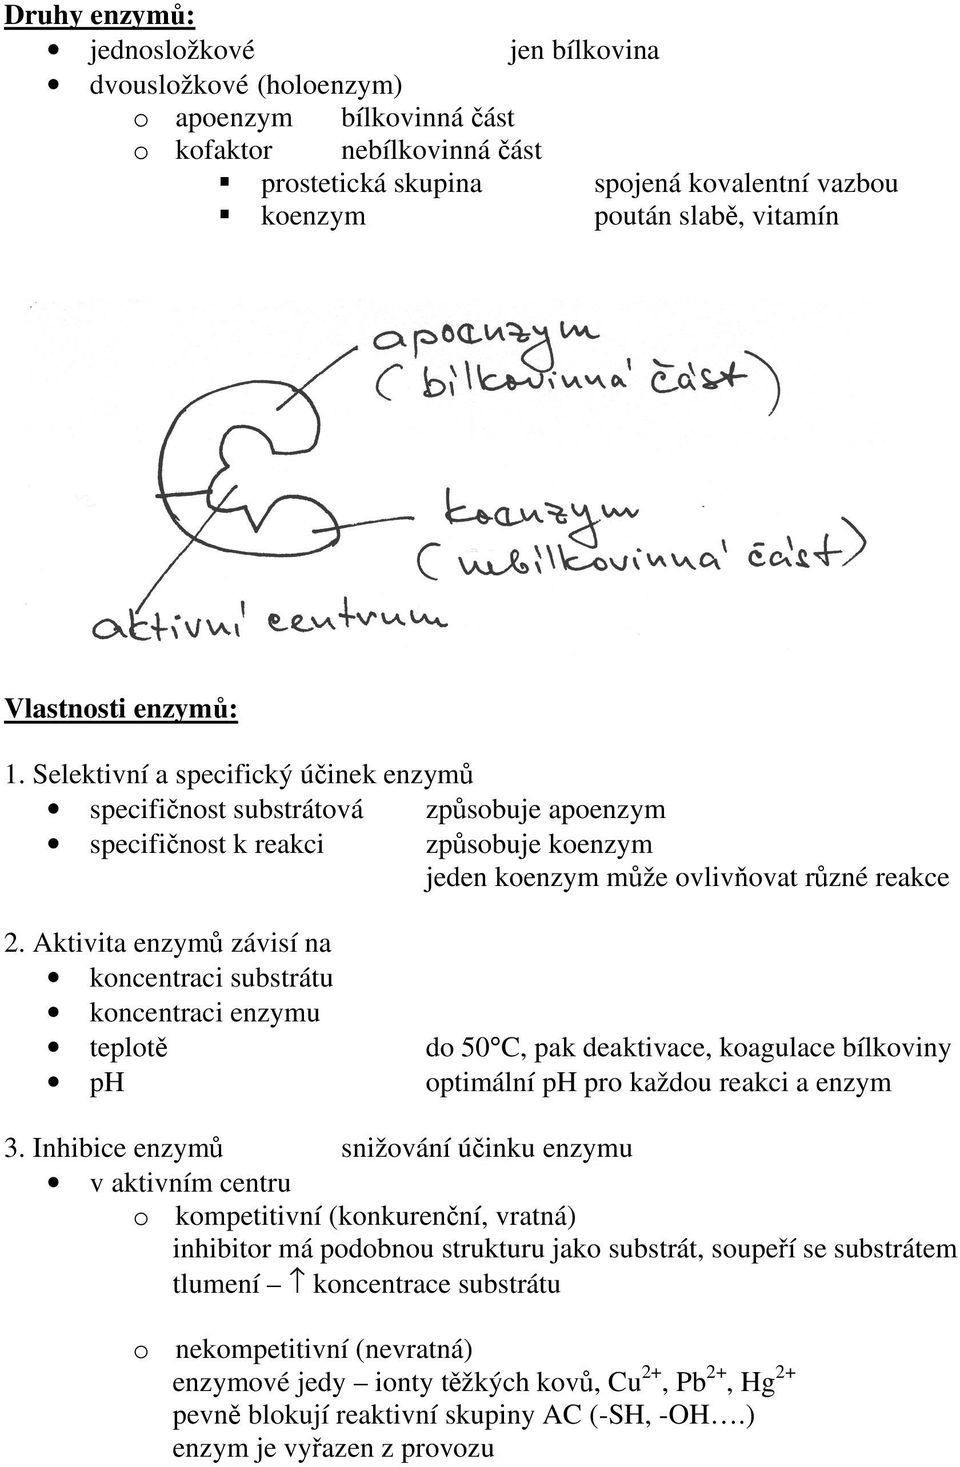 Druhy enzymů:
• jednosložkové jen bílkovina
• dvousložkové (holoenzym)
o apoenzym bílkovinná část
o kofaktor nebílkovinná část
▪ prostetická skupina spojená kovalentní vazbou
▪ koenzym poután slabě, vitamín
apoenzym
(bílkovinná část)
koenzym
(nebílkovinná část)
aktivní centrum
Vlastnosti enzymů:
1. Selektivní a specifický účinek enzymů
• specifičnost substrátová způsobuje apoenzym
• specifičnost k reakci způsobuje koenzym
jeden koenzym může ovlivňovat různé reakce
2. Aktivita enzymů závisí na
• koncentraci substrátu
• koncentraci enzymu
• teplotě do 50°C, pak deaktivace, koagulace bílkoviny
• pH optimální pH pro každou reakci a enzym
3. Inhibice enzymů snižování účinku enzymu
• v aktivním centru
o kompetitivní (konkurenční, vratná)
inhibitor má podobnou strukturu jako substrát, soupeří se substrátem
tlumení – ↑ koncentrace substrátu
o nekompetitivní (nevratná)
enzymové jedy – ionty těžkých kovů, Cu²⁺, Pb²⁺, Hg²⁺
pevně blokují reaktivní skupiny AC (-SH, -OH….)
enzym je vyřazen z provozu